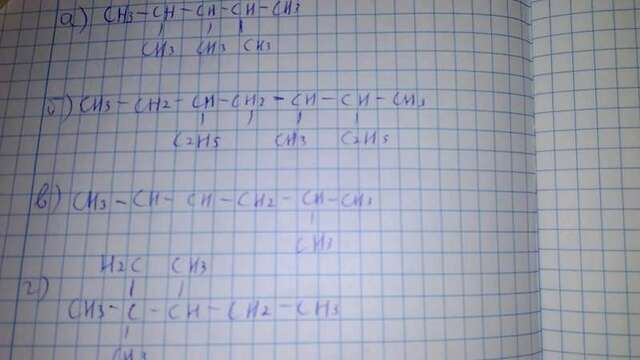 а) CH3-CH-CH-CH-CH3
CH3 CH3 CH3
б) CH3-CH2-CH-CH2-CH-CH-CH3
C2H5 CH3 C2H5
в) CH3-CH-CH-CH2-CH-CH3
CH3
H2C CH3
г)
CH3-C-CH-CH2-CH3
CH3